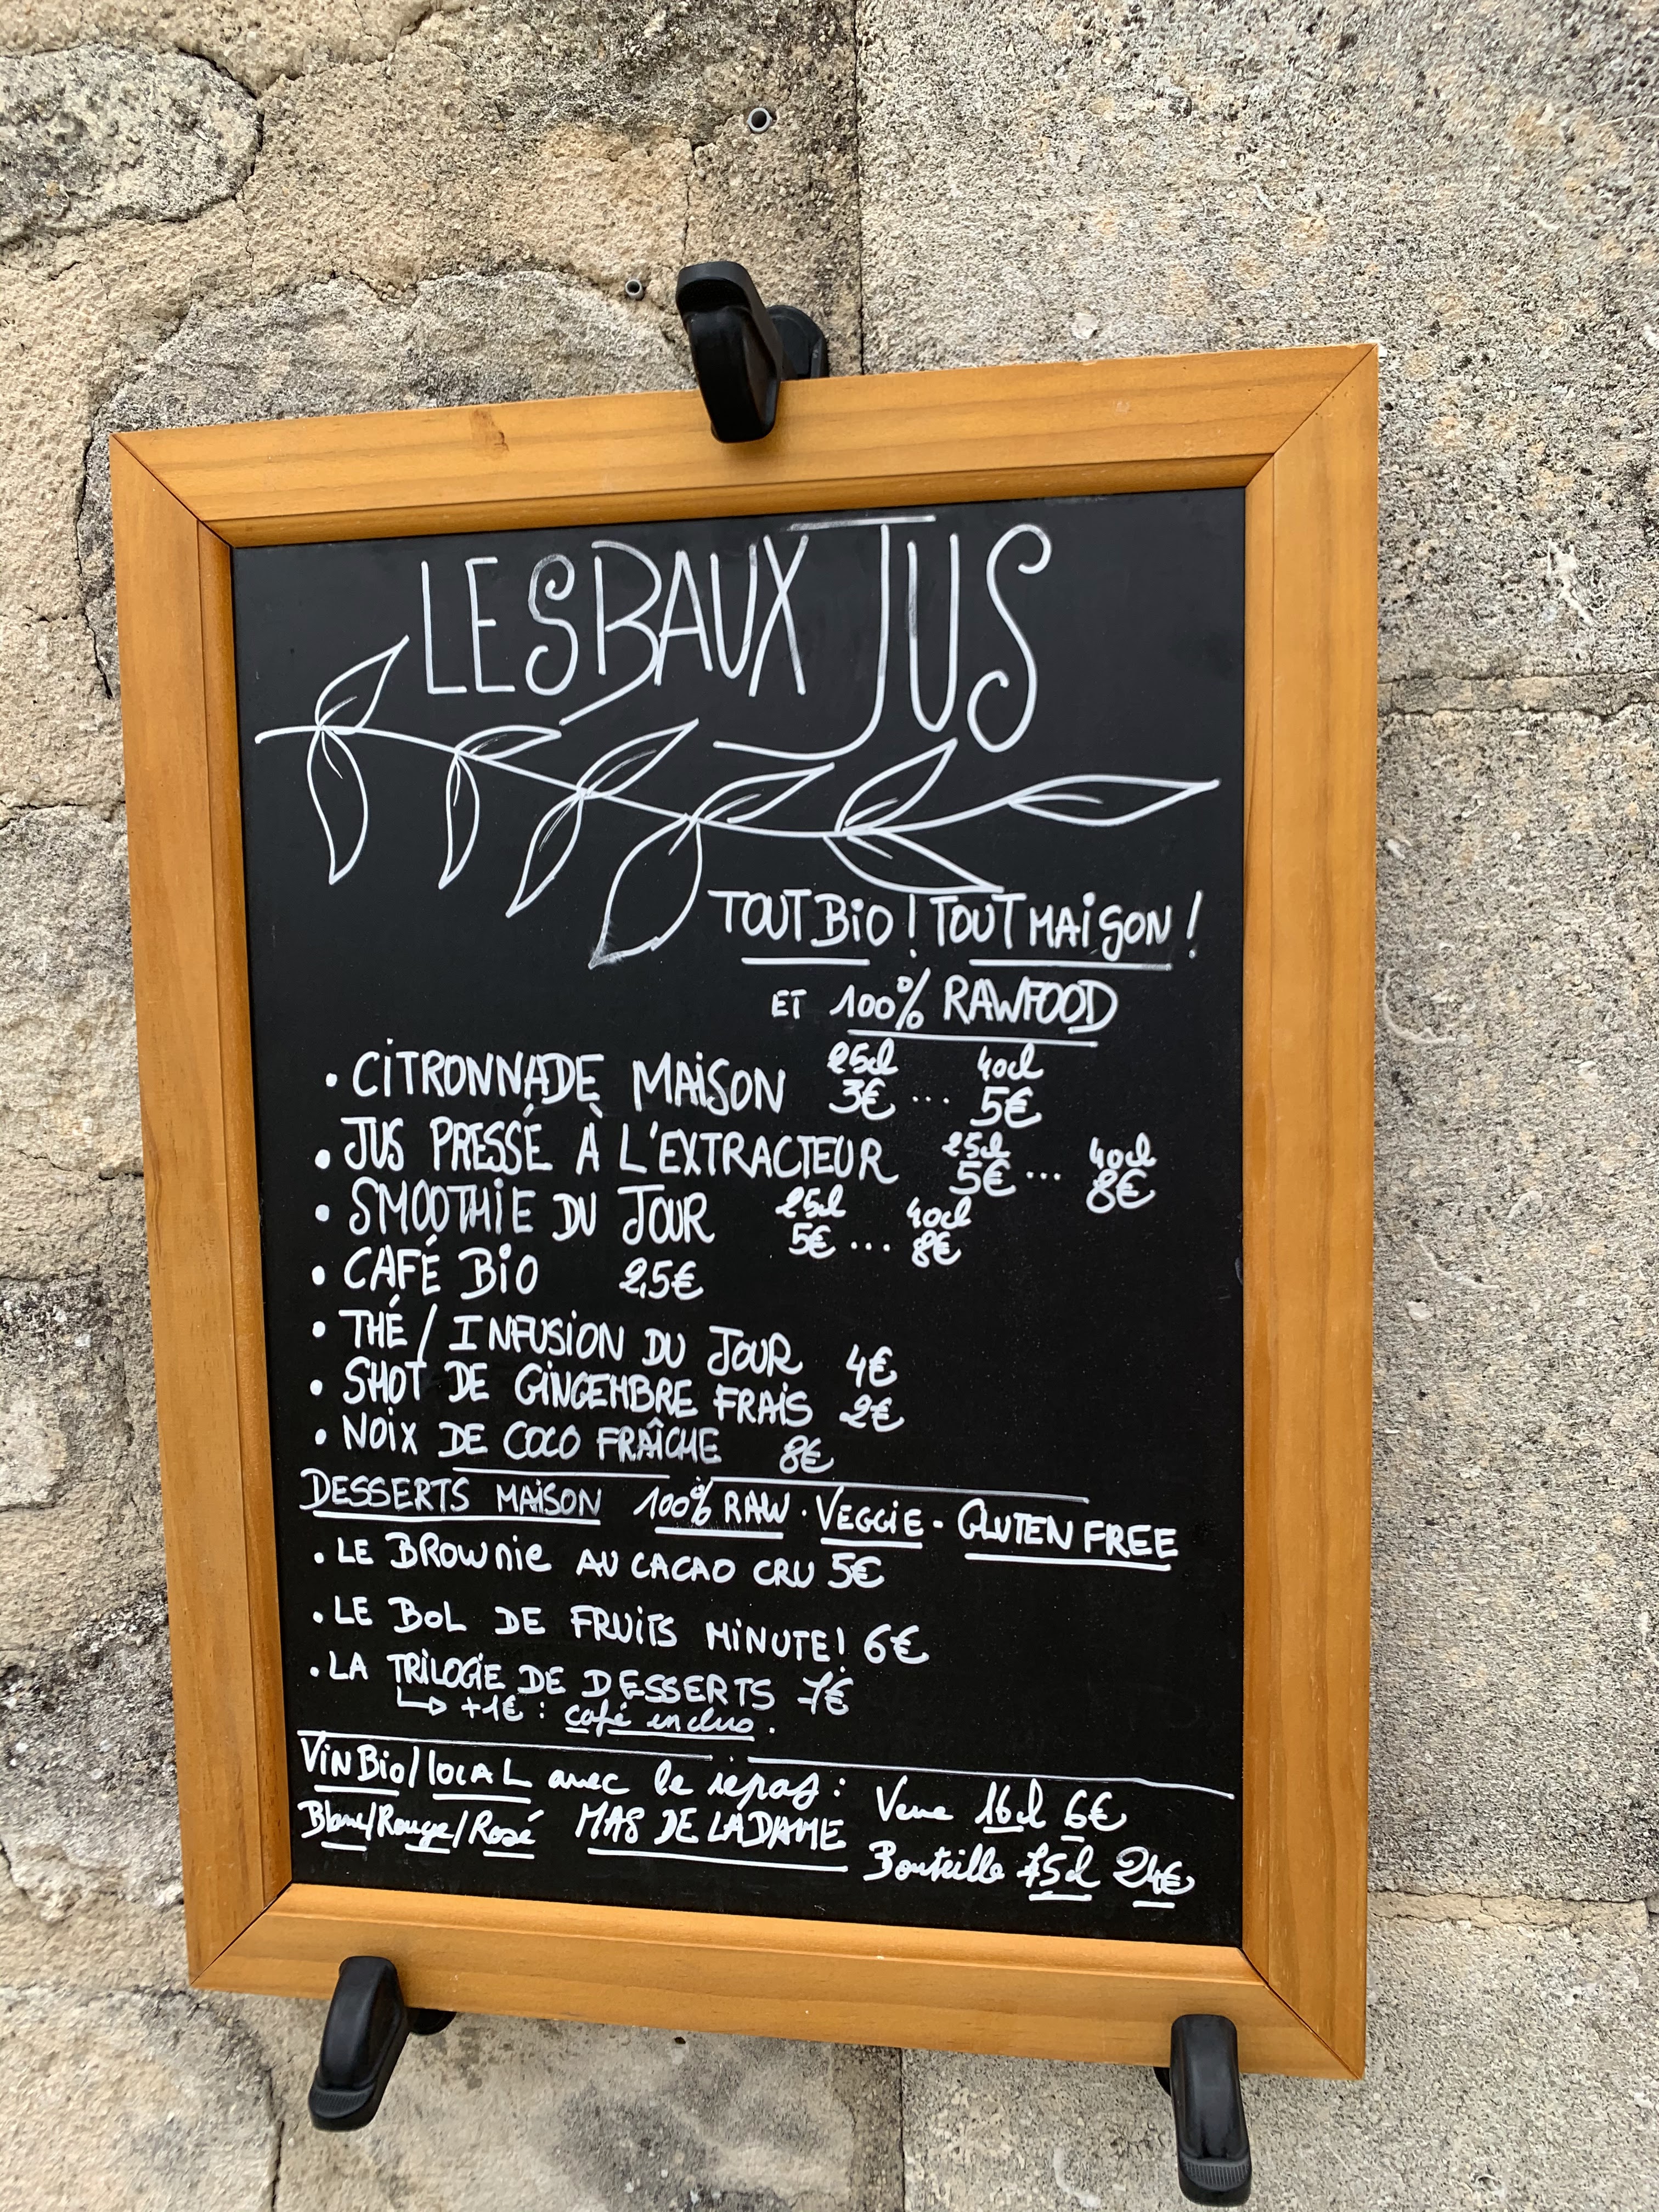 LES BAUX JUS
TOUT BiO ! TOUT MAiSON !
ET 100% RAWFOOD
25cl 40cl
• CiTRONNADE MAiSON 3€ ... 5€
25cl 40cl
• JUS PRESSÉ À L'EXTRACTEUR 5€ ... 8€
25cl 40cl
• SMOOTHiE DU JOUR 5€ ... 8€
• CAFÉ BiO 2,5€
• THÉ / INFUSION DU JOUR 4€
• SHOT DE GiNGEMBRE FRAiS 2€
• NOiX DE COCO FRAÎCHE 8€
DESSERTS MAiSON 100% RAW · VEGGiE - GLUTEN FREE
• LE BROWNiE AU CACAO CRU 5€
• LE BOL DE FRUiTS MiNUTE! 6€
• LA TRiLOGiE DE DESSERTS 7€
↳ +1€ : café inclus.
ViN BiO/LOCAL avec le repas : Verre 16cl 6€
Blanc/Rouge/Rosé MAS DE LA DAME Bouteille 75cl 24€